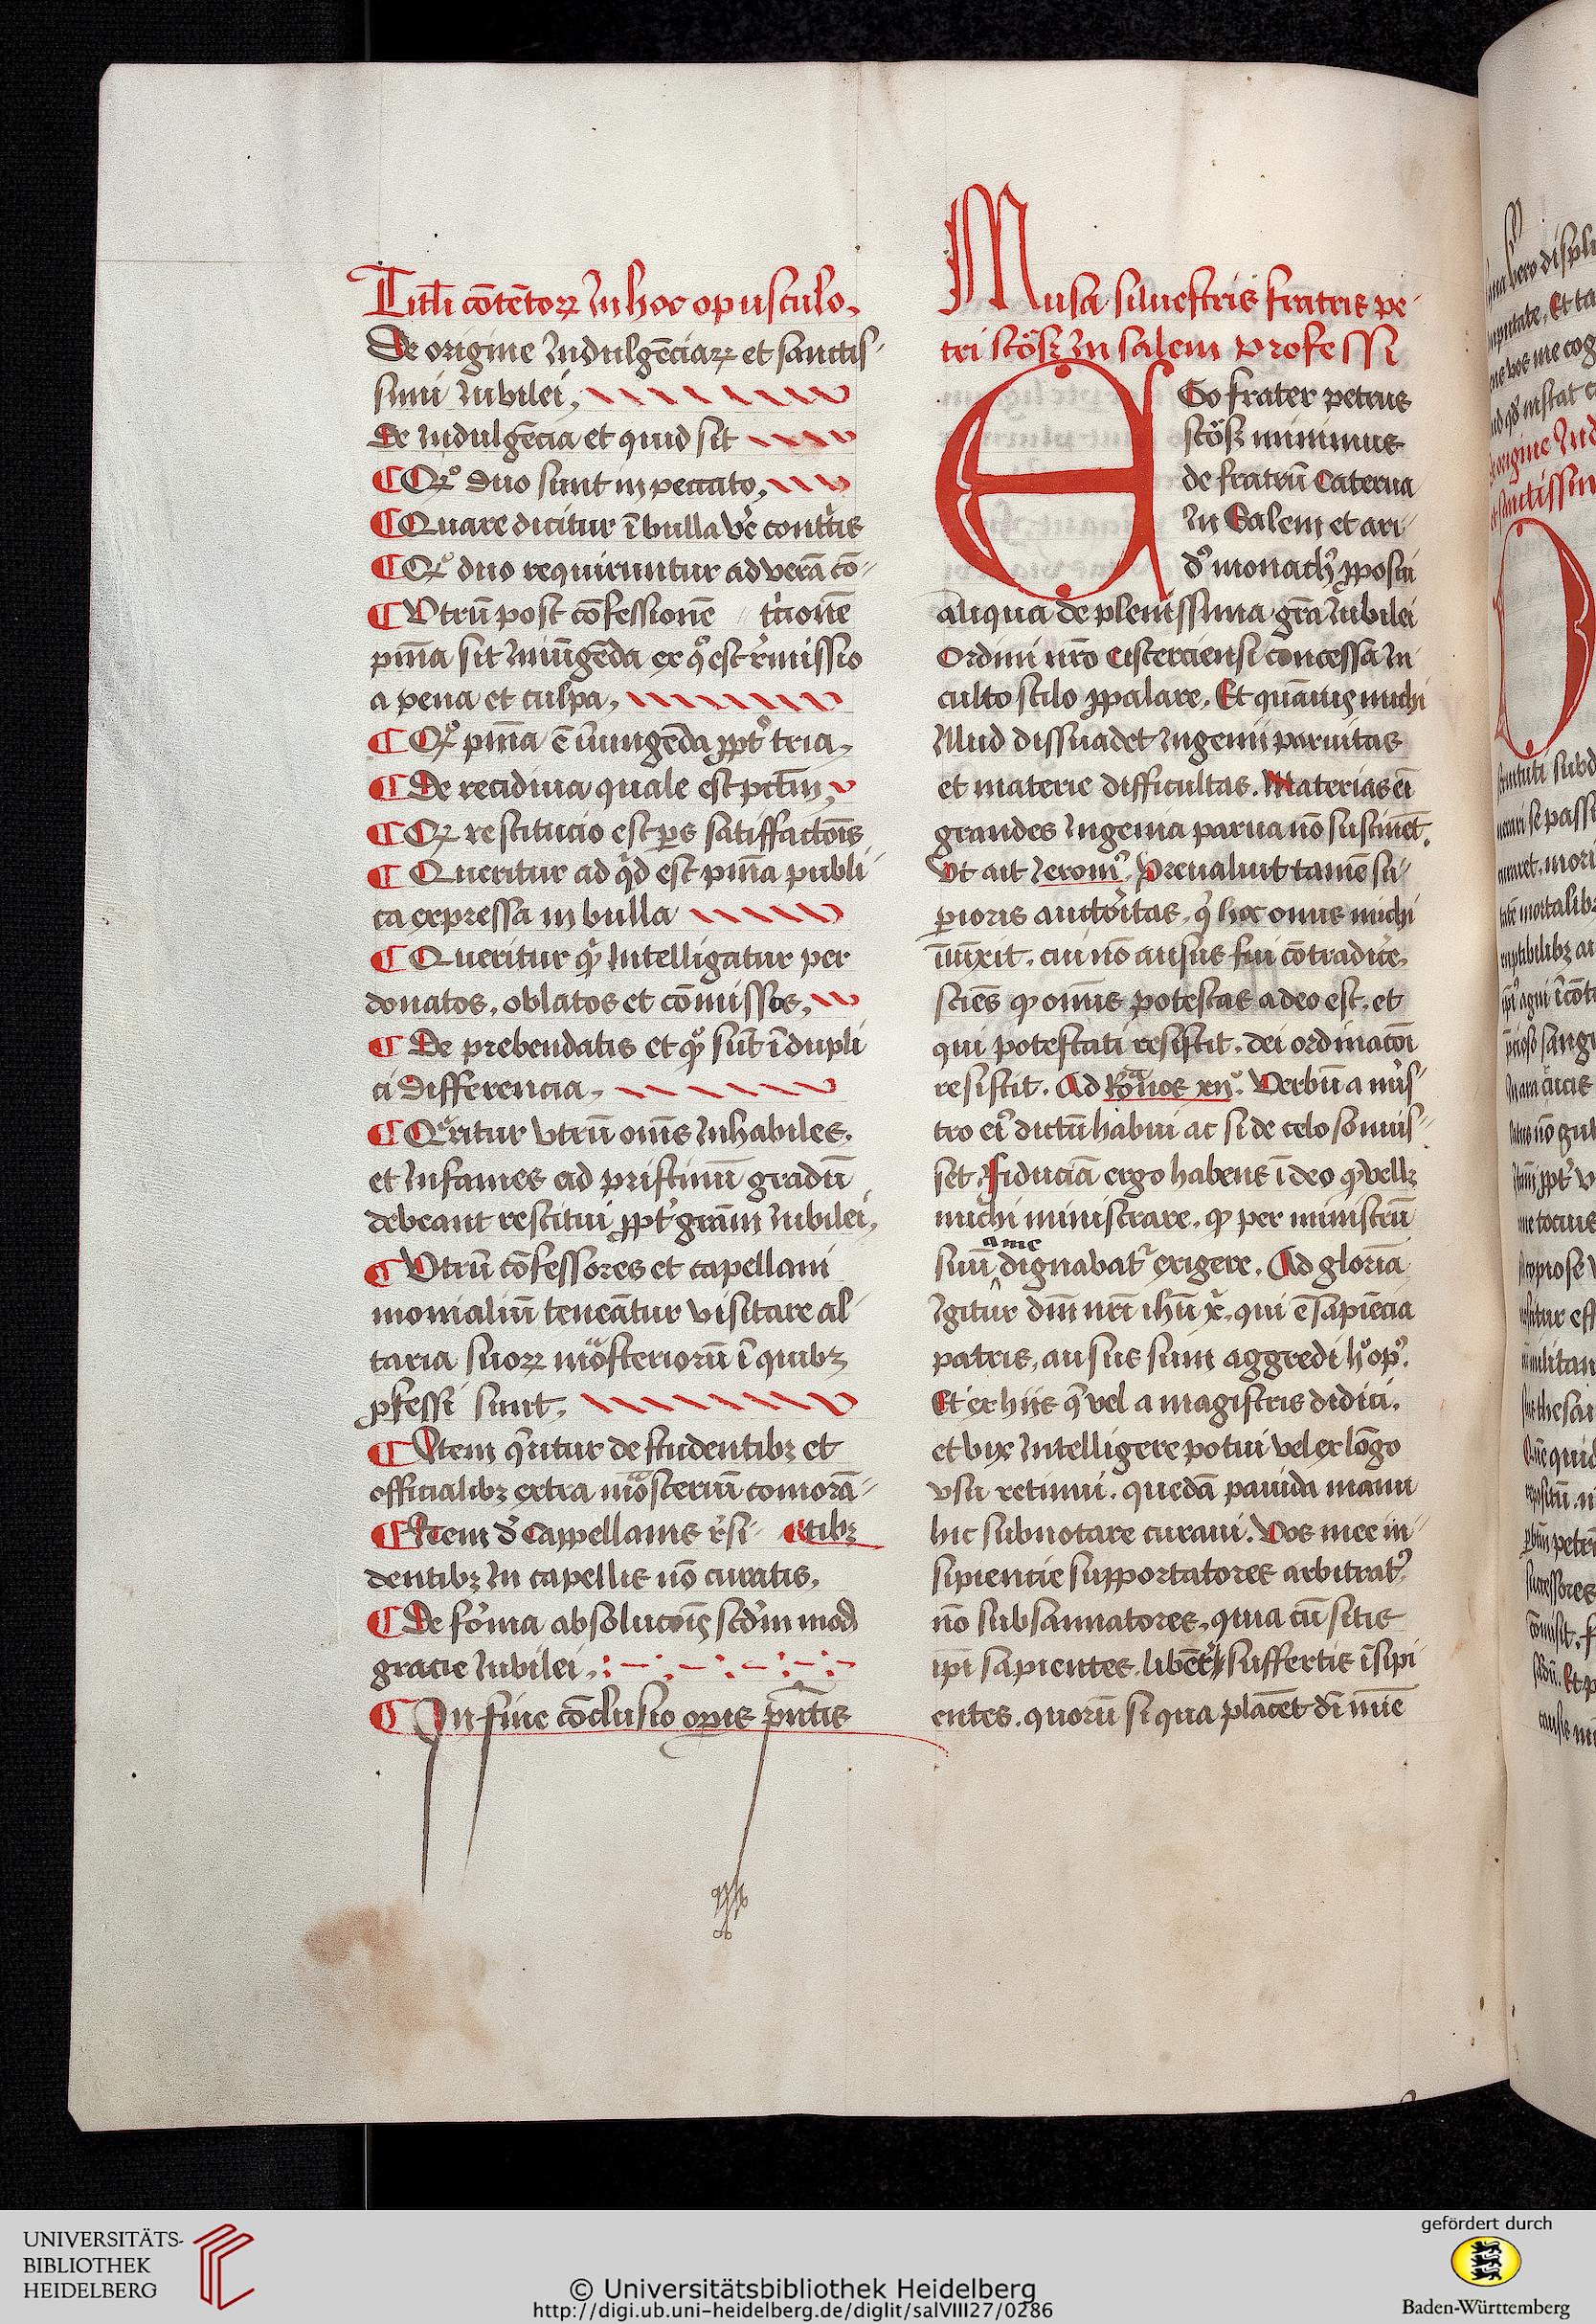 Titli cōtētoꝝ Inhoc opusculo.
De origine Indulgēciaꝝ et sanctis-
simi Iubilei.
De Indulgēcia et quid sit
¶ Qꝛ duo sunt in peccato.
¶ Quare dicitur ī bulla ve͛ contͥtis
¶ Qꝛ duo requiruntur ad verā cō-
¶ Vtrū post cōfessionē tͥcionē
pīna sit Iniūgēda ex qͦ est r͛missio
a pena et culpa.
¶ Qꝛ pīna ē iniungēda ꝓpt͛ tria.
¶ De recidiua quale est pctīn
¶ Qꝛ restitucio est ꝑs satisfactōis
¶ Queritur ad qͥd est pīna publi-
ca expressa in bulla
¶ Queritur qͣ Intelligatur per
donatos. oblatos et cōmissos.
¶ De prebendatis et ꝙ sūt ī dupli
ci differencia.
¶ Qͣritur vtrū om̄s Inhabiles.
et Infames ad pristinū gradū
debeant restitui ꝓpt͛ grām Iubilei.
¶ Vtrū cōfessores et capellani
monialiū teneātur visitare al-
taria suoꝝ mōͣsteriorū ī quibꝫ
ꝓfessi sunt.
¶ Item qͣritur de studentibꝫ et
officialibꝫ extra mōͣsteriū comorā-
¶ Item d͛ Cappellanis r͛si- etibꝫ
dentibꝫ In capellis nō curatis.
¶ De forma absolucōis scd̄m mod
gracie Iubilei.
¶ In fine cōclusio oꝑis pn̄tis
Musa siluestris fratris pe-
tri stöß In salem professi
EGo frater petrus
stöß minimus
de fratrū Caterua
In Salem et ari-
d͛ monachꝰ ꝓposui
aliqua de plenissima grā Iubilei
Ordini nr̄o cisterciensi concessa In
culto stilo ꝓpalare. Et quāuis michi
Illud dissuadet Ingenii paruitas
et materie difficultas. Materias eī
grandes Ingenia parua nō sustinēt.
Vt ait Ieromꝰ. Preualuit tamē su-
ꝑioris auctoͥtas. qͥ hoc onus michi
iniūxit. cui nō ausus fui cōtradice͛.
sciēs ꝙ om̄is potestas a deo est. et
qui potestati resistit. dei ordinacōi
resistit. Ad Roͣnos xiij. Verbū a mͥs-
tro eiꝰ dictū habui ac si de celo sonuis-
set. Fiduciā ergo habens ī deo ꝙ vellꝫ
michi ministrare. ꝙ per ministrū
a me
suū dignabatͬ exigere. Ad gloriā
Igitur dn̄i nr̄i ihū xͥ. qui ē sapiēcia
patris. ausus sum aggredi hͦ opꝰ.
Et ex hiis qͥ vel a magistris didici.
et vix Intelligere potui vel ex lōgo
vsu retinui. quedā pauida manu
hic subnotare curaui. Vos mee in-
sipiencie supportatores arbitratꝰ
nō subsannatores. quia cū sitis
ipī sapientes. libēter suffertis īsipi-
entes. quorū si qua placēt dī inue
UNIVERSITÄTS-
BIBLIOTHEK
HEIDELBERG
© Universitätsbibliothek Heidelberg
http://digi.ub.uni-heidelberg.de/diglit/salVIII27/0286
gefördert durch
Baden-Württemberg